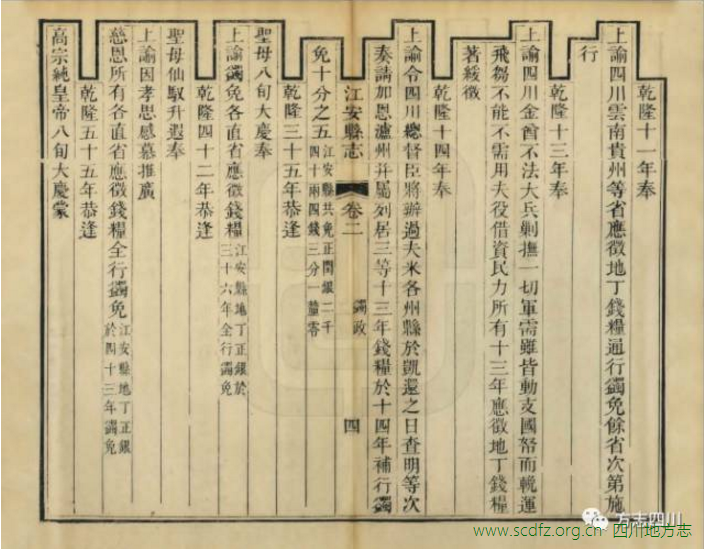 乾隆十一年奉
上諭四川雲南貴州等省應徵地丁錢糧通行蠲免餘省次第施
行
乾隆十三年奉
上諭四川金酋不法大兵剿撫一切軍需雖皆動支國帑而輓運
飛芻不能不需用夫役借資民力所有十三年應徵地丁錢糧
著緩徵
乾隆十四年奉
上諭令四川總督臣將辦過夫米各州縣於凱還之日查明等次
奏請加恩瀘州并屬列居三等十三年錢糧於十四年補行蠲
江安縣志 卷二 蠲政 四
免十分之五江安縣共免正閏銀二千
四十兩四錢三分一釐零
乾隆三十五年恭逢
聖母八旬大慶奉
上諭蠲免各直省應徵錢糧江安縣地丁正銀於
三十六年全行蠲免
乾隆四十二年恭逢
聖母仙馭升遐奉
上諭因孝思感慕推廣
慈恩所有各直省應徵錢糧全行蠲免江安縣地丁正銀
於四十三年蠲免
乾隆五十五年恭逢
高宗純皇帝八旬大慶蒙
方志四川
www.scdfz.org.cn 四川地方志